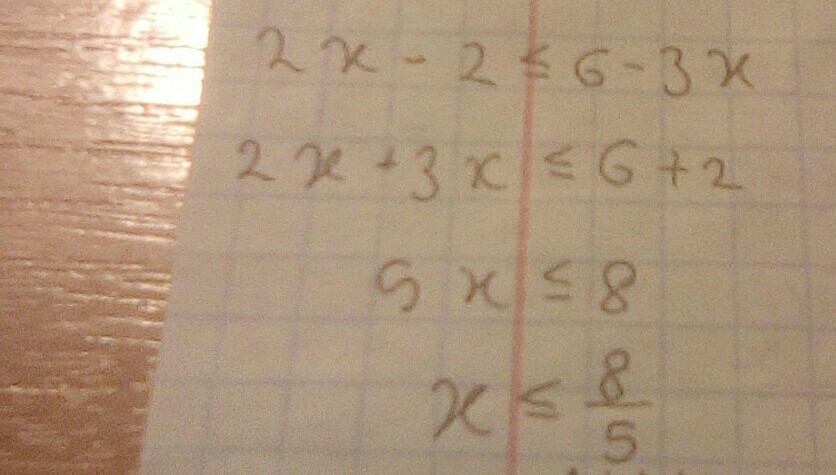 2x - 2 ≤ 6 - 3x
2x + 3x ≤ 6 + 2
5x ≤ 8
x ≤ 8/5